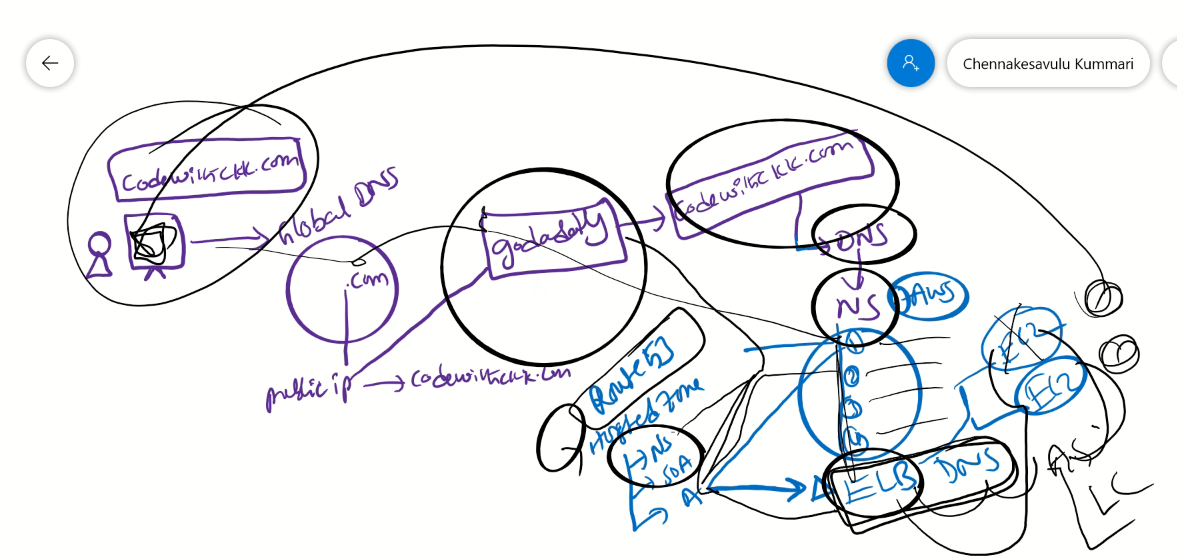 Chennakesavulu Kummari
Codewithckk.com
Global DNS
.Com
public ip → Codewithckk.com
godaddy
Codewithckk.com
DNS
NS
AWS
1
2
3
4
Route 53
Hosted Zone
NS
SOA
A
ELB DNS
EC2
EC2
LC